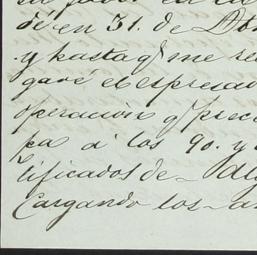 dé en 31. de Abr
y hasta q.e me re
garé el espresad
operación q.e prec
pa á los 90. y
tificados de Alg
Cargando los a